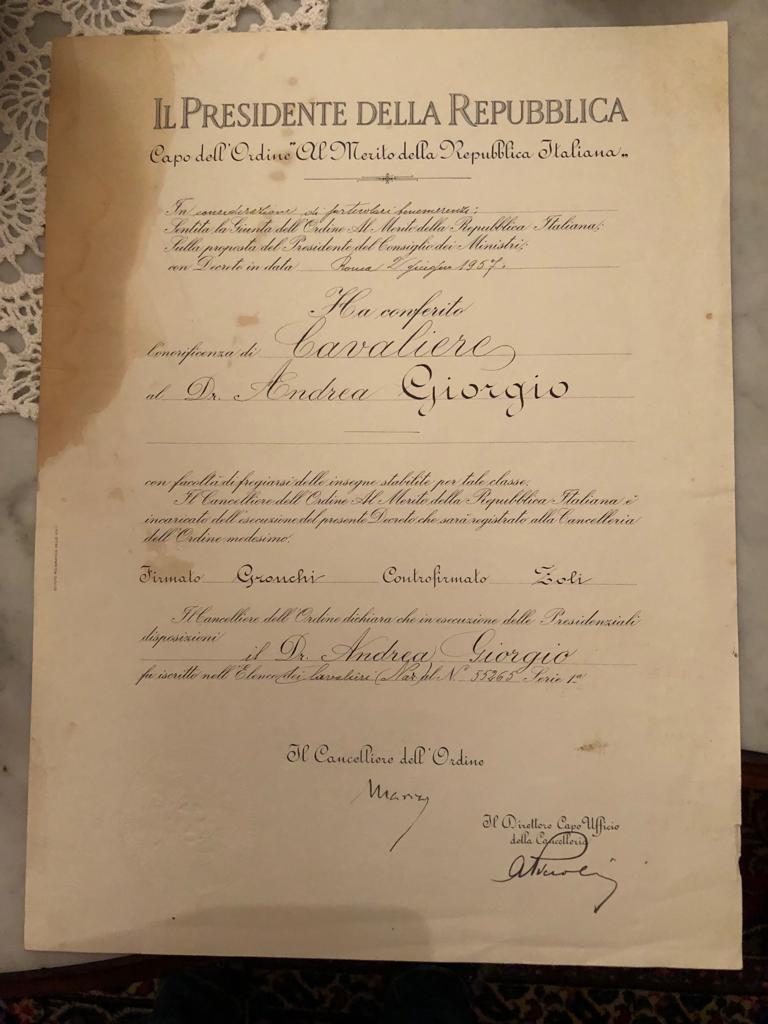 IL PRESIDENTE DELLA REPUBBLICA
Capo dell'Ordine "Al Merito della Repubblica Italiana"
In considerazione di particolari benemerenze;
Sentita la Giunta dell'Ordine Al Merito della Repubblica Italiana;
Sulla proposta del Presidente del Consiglio dei Ministri;
con Decreto in data Roma 2 giugno 1957.
Ha conferito
l'onorificenza di Cavaliere
al Dr. Andrea Giorgio
con facoltà di fregiarsi delle insegne stabilite per tale classe.
Il Cancelliere dell'Ordine Al Merito della Repubblica Italiana è
incaricato dell'esecuzione del presente Decreto che sarà registrato alla Cancelleria
dell'Ordine medesimo.
Firmato Gronchi Controfirmato Zoli
Il Cancelliere dell'Ordine dichiara che in esecuzione delle Presidenziali
disposizioni
il Dr. Andrea Giorgio
fu iscritto nell'Elenco dei Cavalieri (Naz.) al N. 55265 Serie 1a
Il Cancelliere dell'Ordine
Il Direttore Capo Ufficio
della Cancelleria